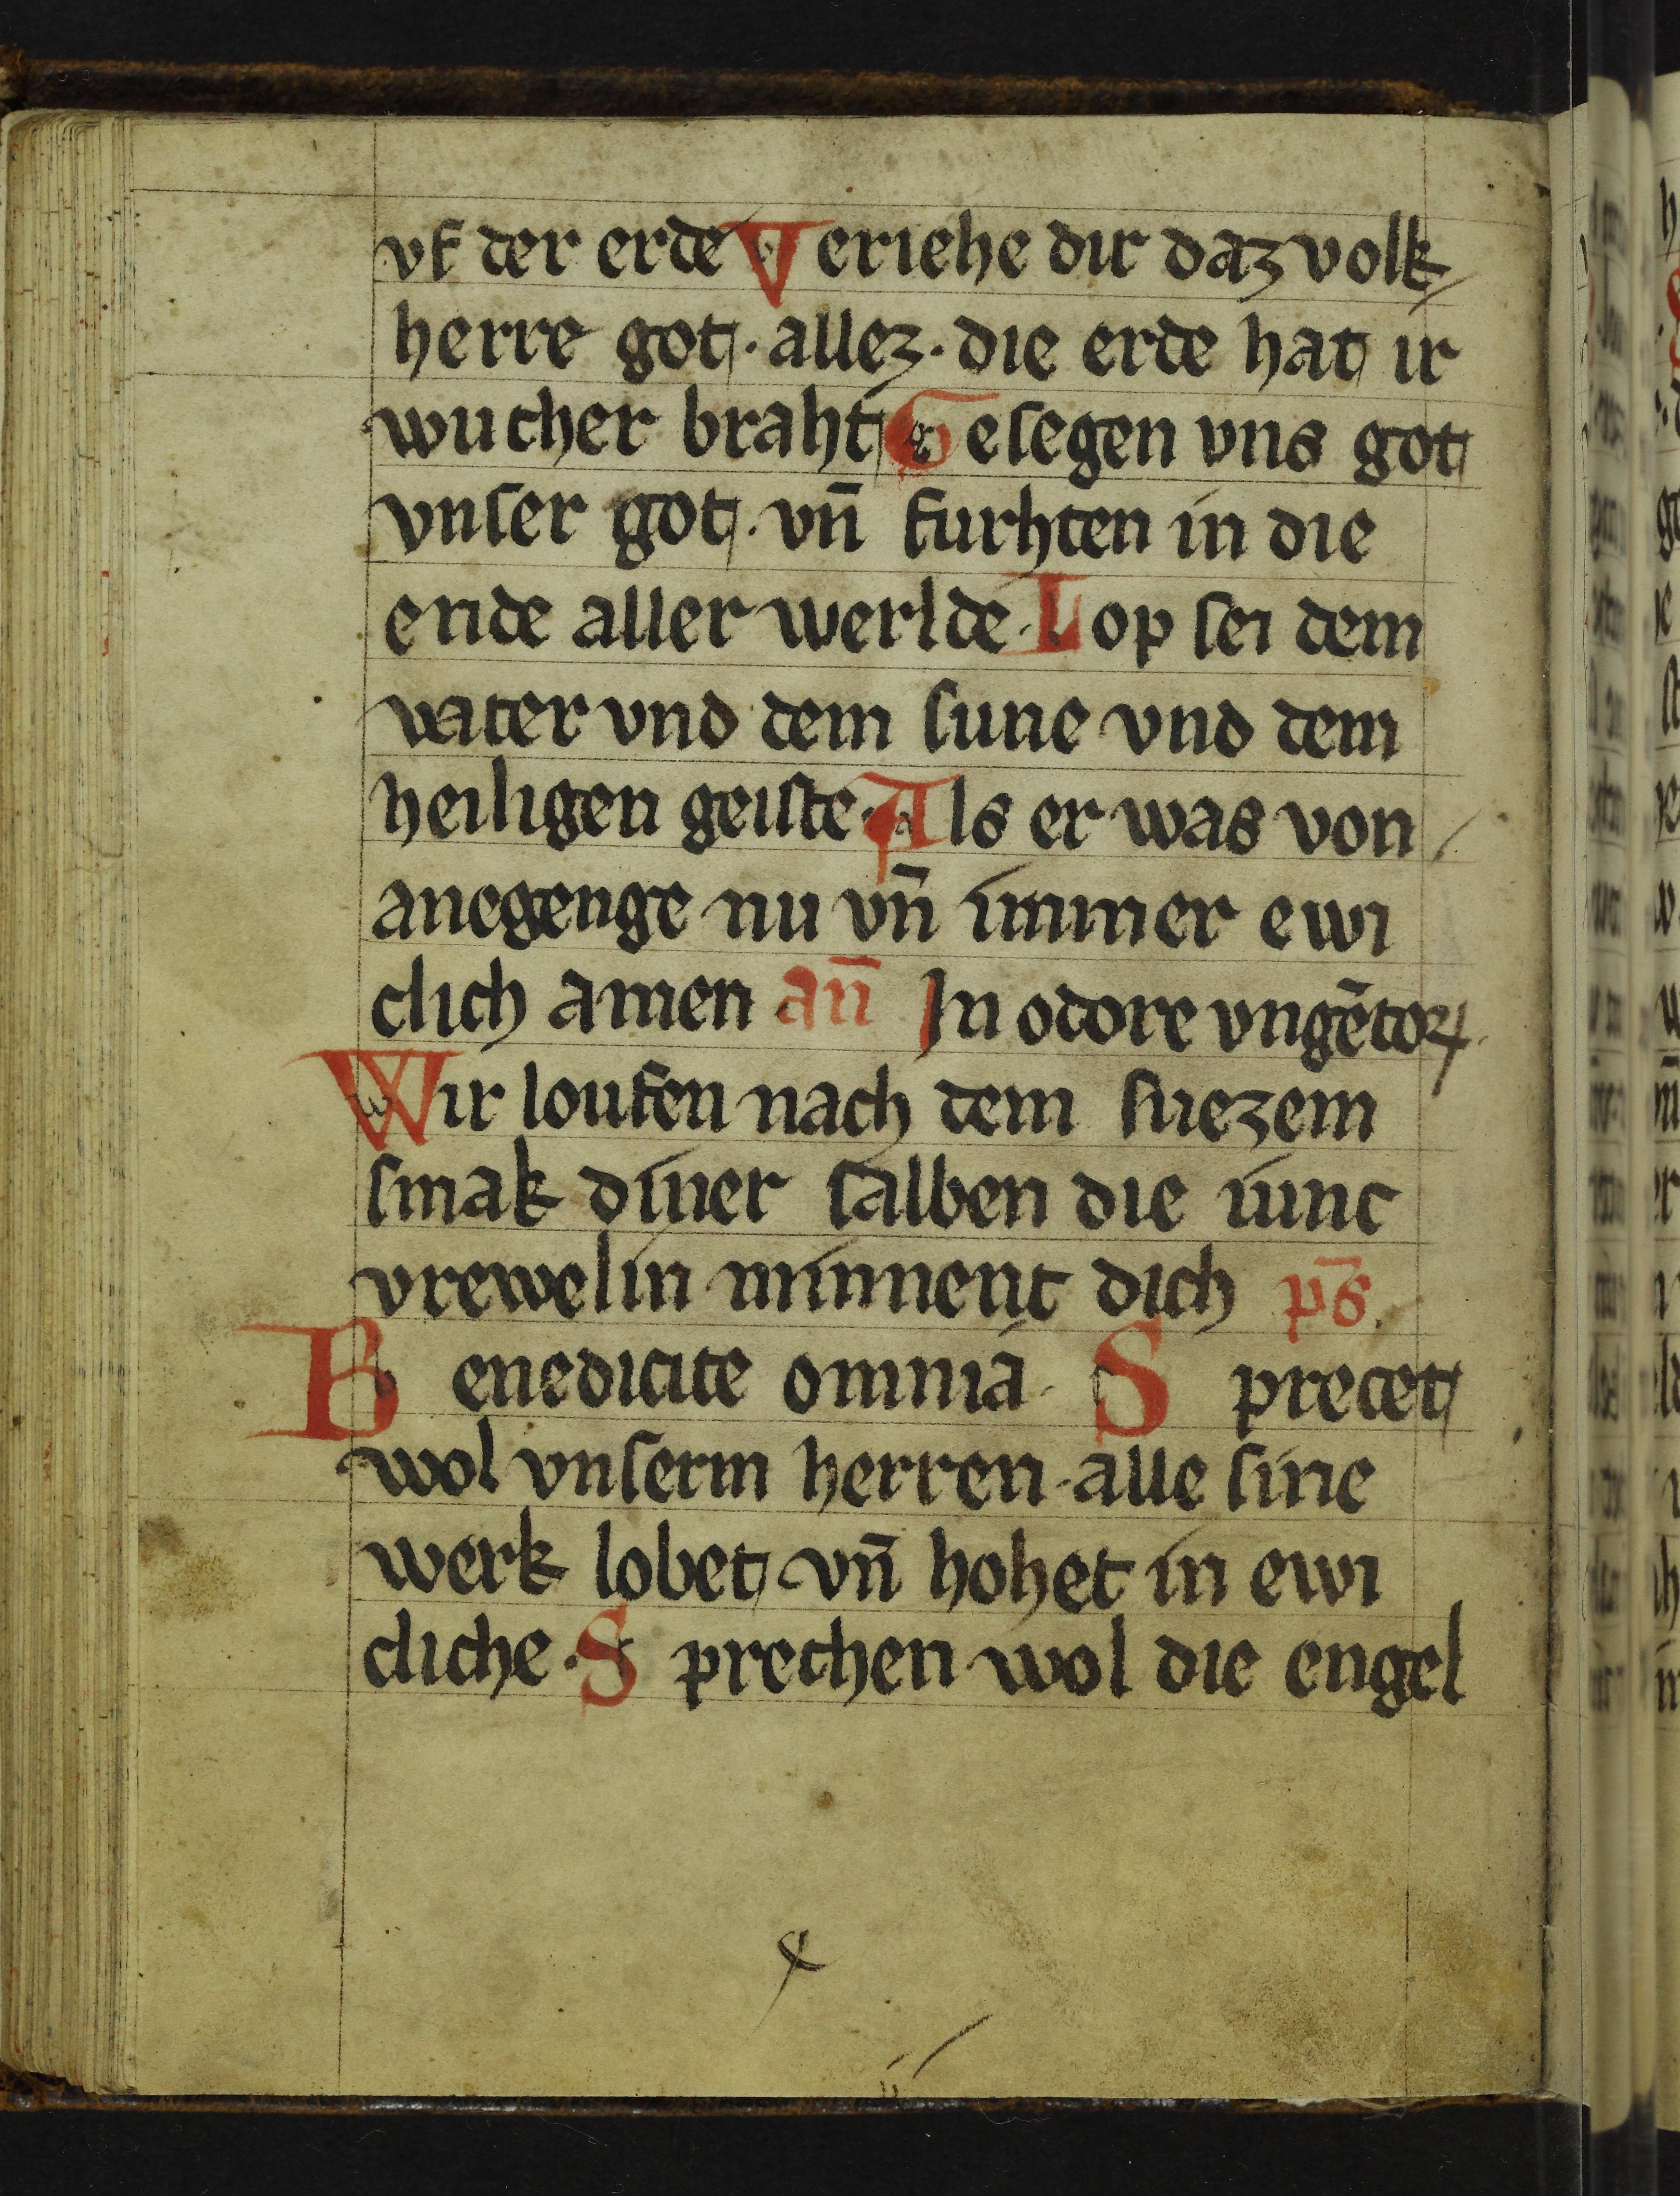 vf der erde Veriehe dir daz volk
herre got · allez · die erde hat ir
wucher braht Gesegen vns got
vnser got · vn̄ furhten in die
ende aller werlde · Lop sei dem
vater vnd dem sune vnd dem
heiligen geiste · Als er was von
anegenge nu vn̄ immer ewi
clich amen an̄ In odore vngētoꝝ
Wir loufen nach dem suezem
smak diner salben die iunc
vrewelin minnent dich p̄s.
Benedicite omnia · Sprecet
wol vnserm herren · alle sine
werk lobet vn̄ hohet in ewi
cliche · Sprechen wol die engel